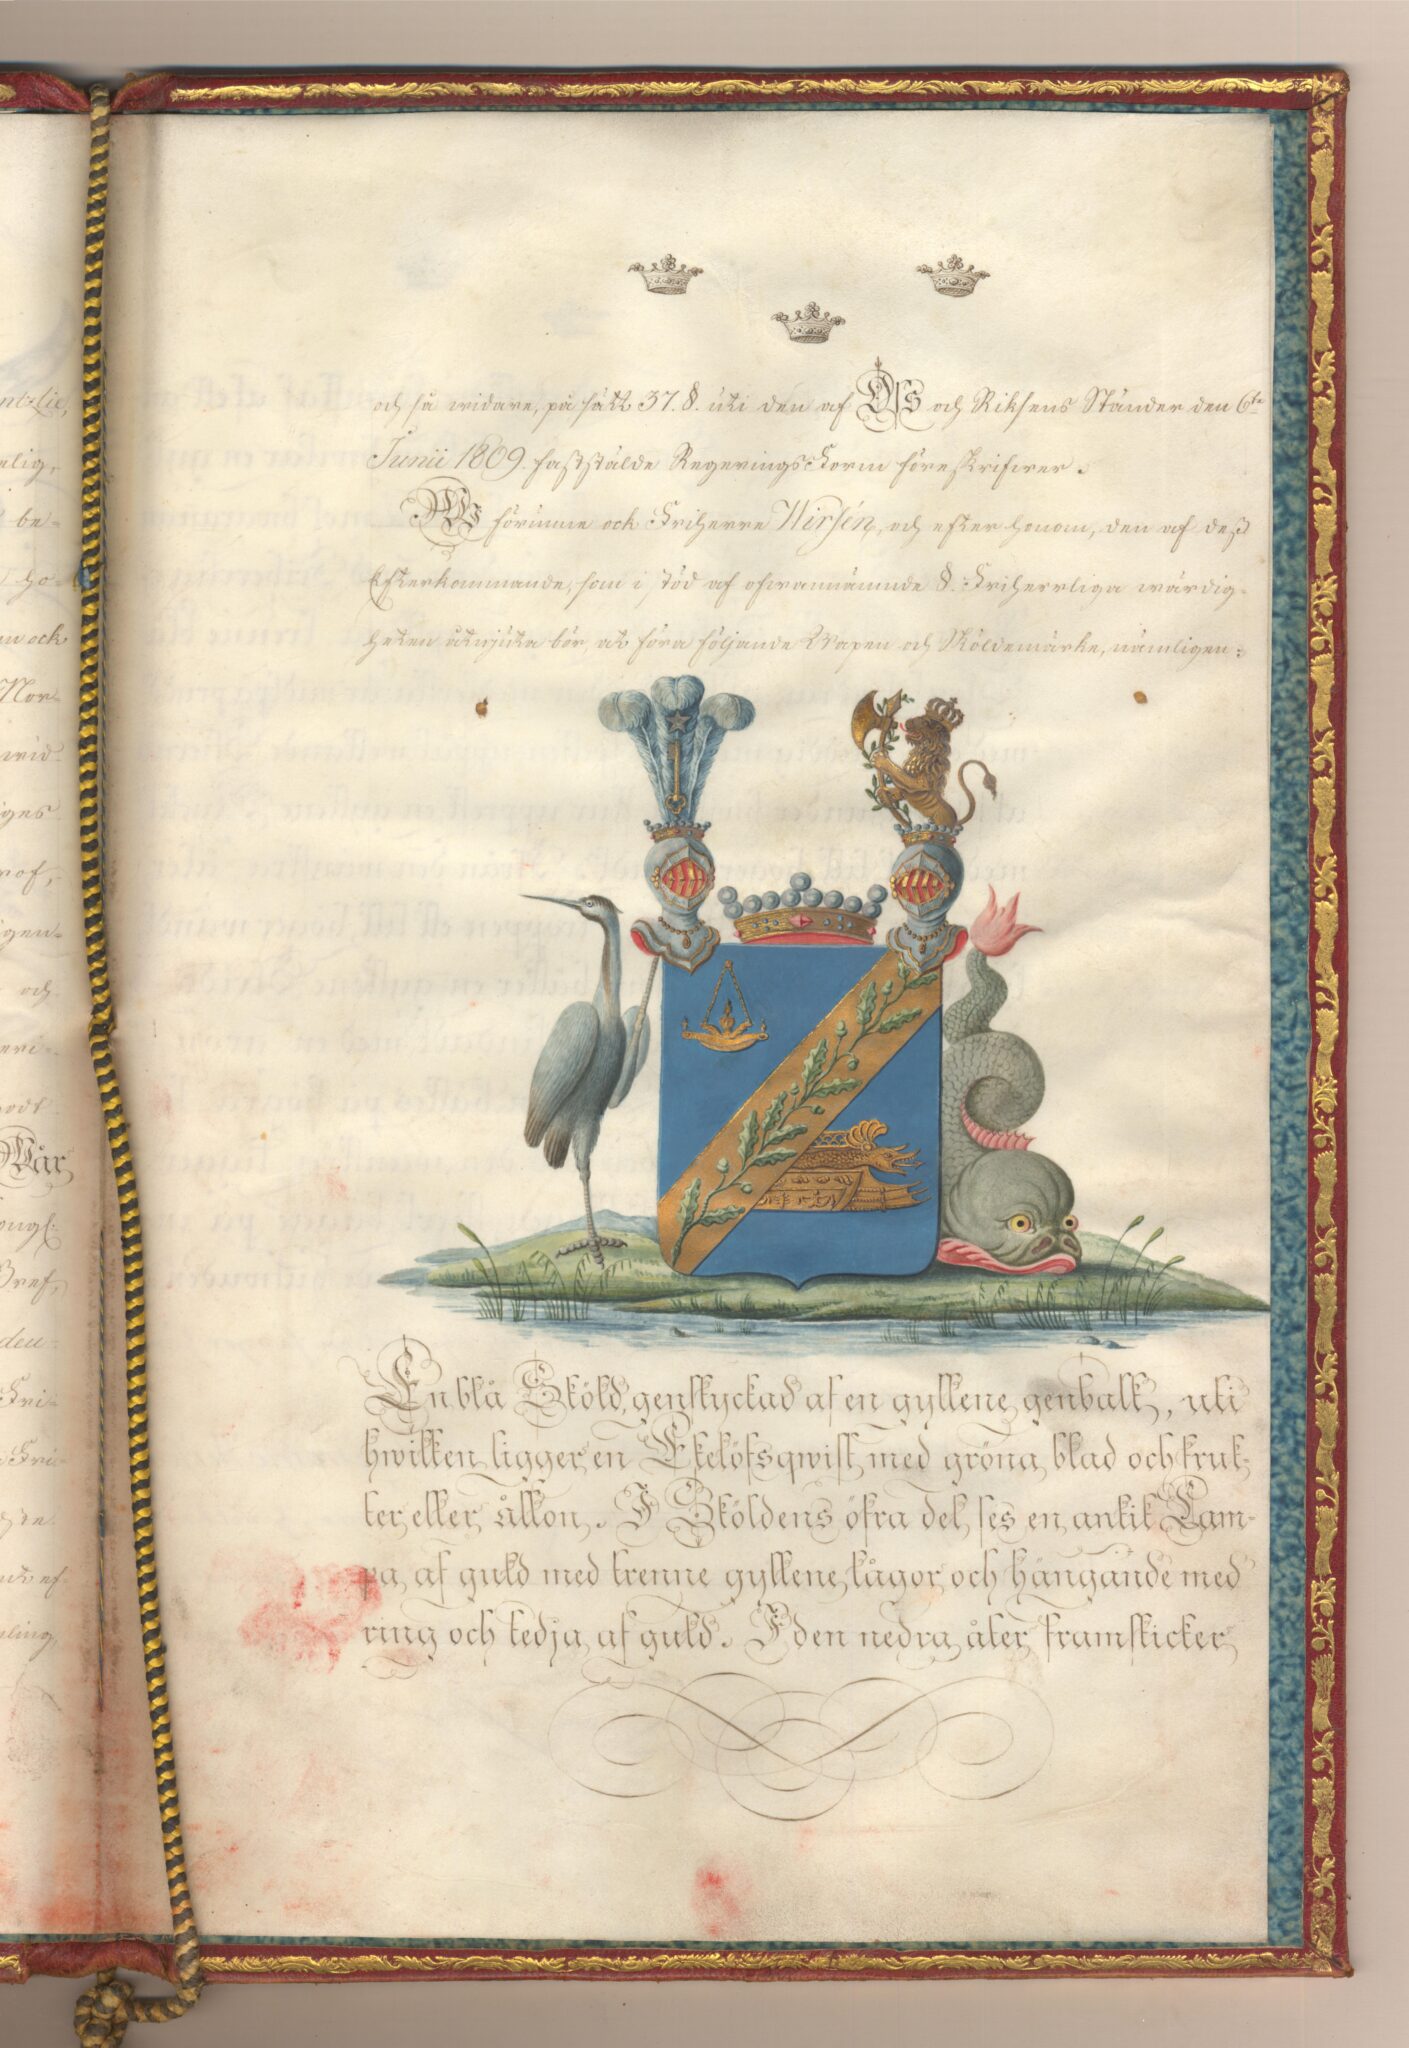 och så widare, på sätt 37. §. uti den af Oss och Riksens Ständer den 6te
Junii 1809. faststälde Regerings-Form föreskrifwer.
Wi förunne ock Friherre Wirsén, och efter honom, den af deß
Efterkommande, som i stöd af ofwannämnde §. Friherrliga wärdig-
heten åtnjuta bör, at föra följande Wapen och Sköldemärke, nämligen:
En blå Sköld, genstyckad af en gyllene genbalk, uti
hwilken ligger en Ekelöfsqwist med gröna blad och fruk-
ter eller ållon. I Sköldens öfra del ses en antik Lam-
pa af guld med trenne gyllene lågor och hängande med
ring och kedja af guld. I den nedra åter framskicker
ntzlie,
elig,
be-
ho-
ock
Nor-
wid-
iges
rof,
gen-
och
eri-
Wår
Bref,
Fri-
ling,